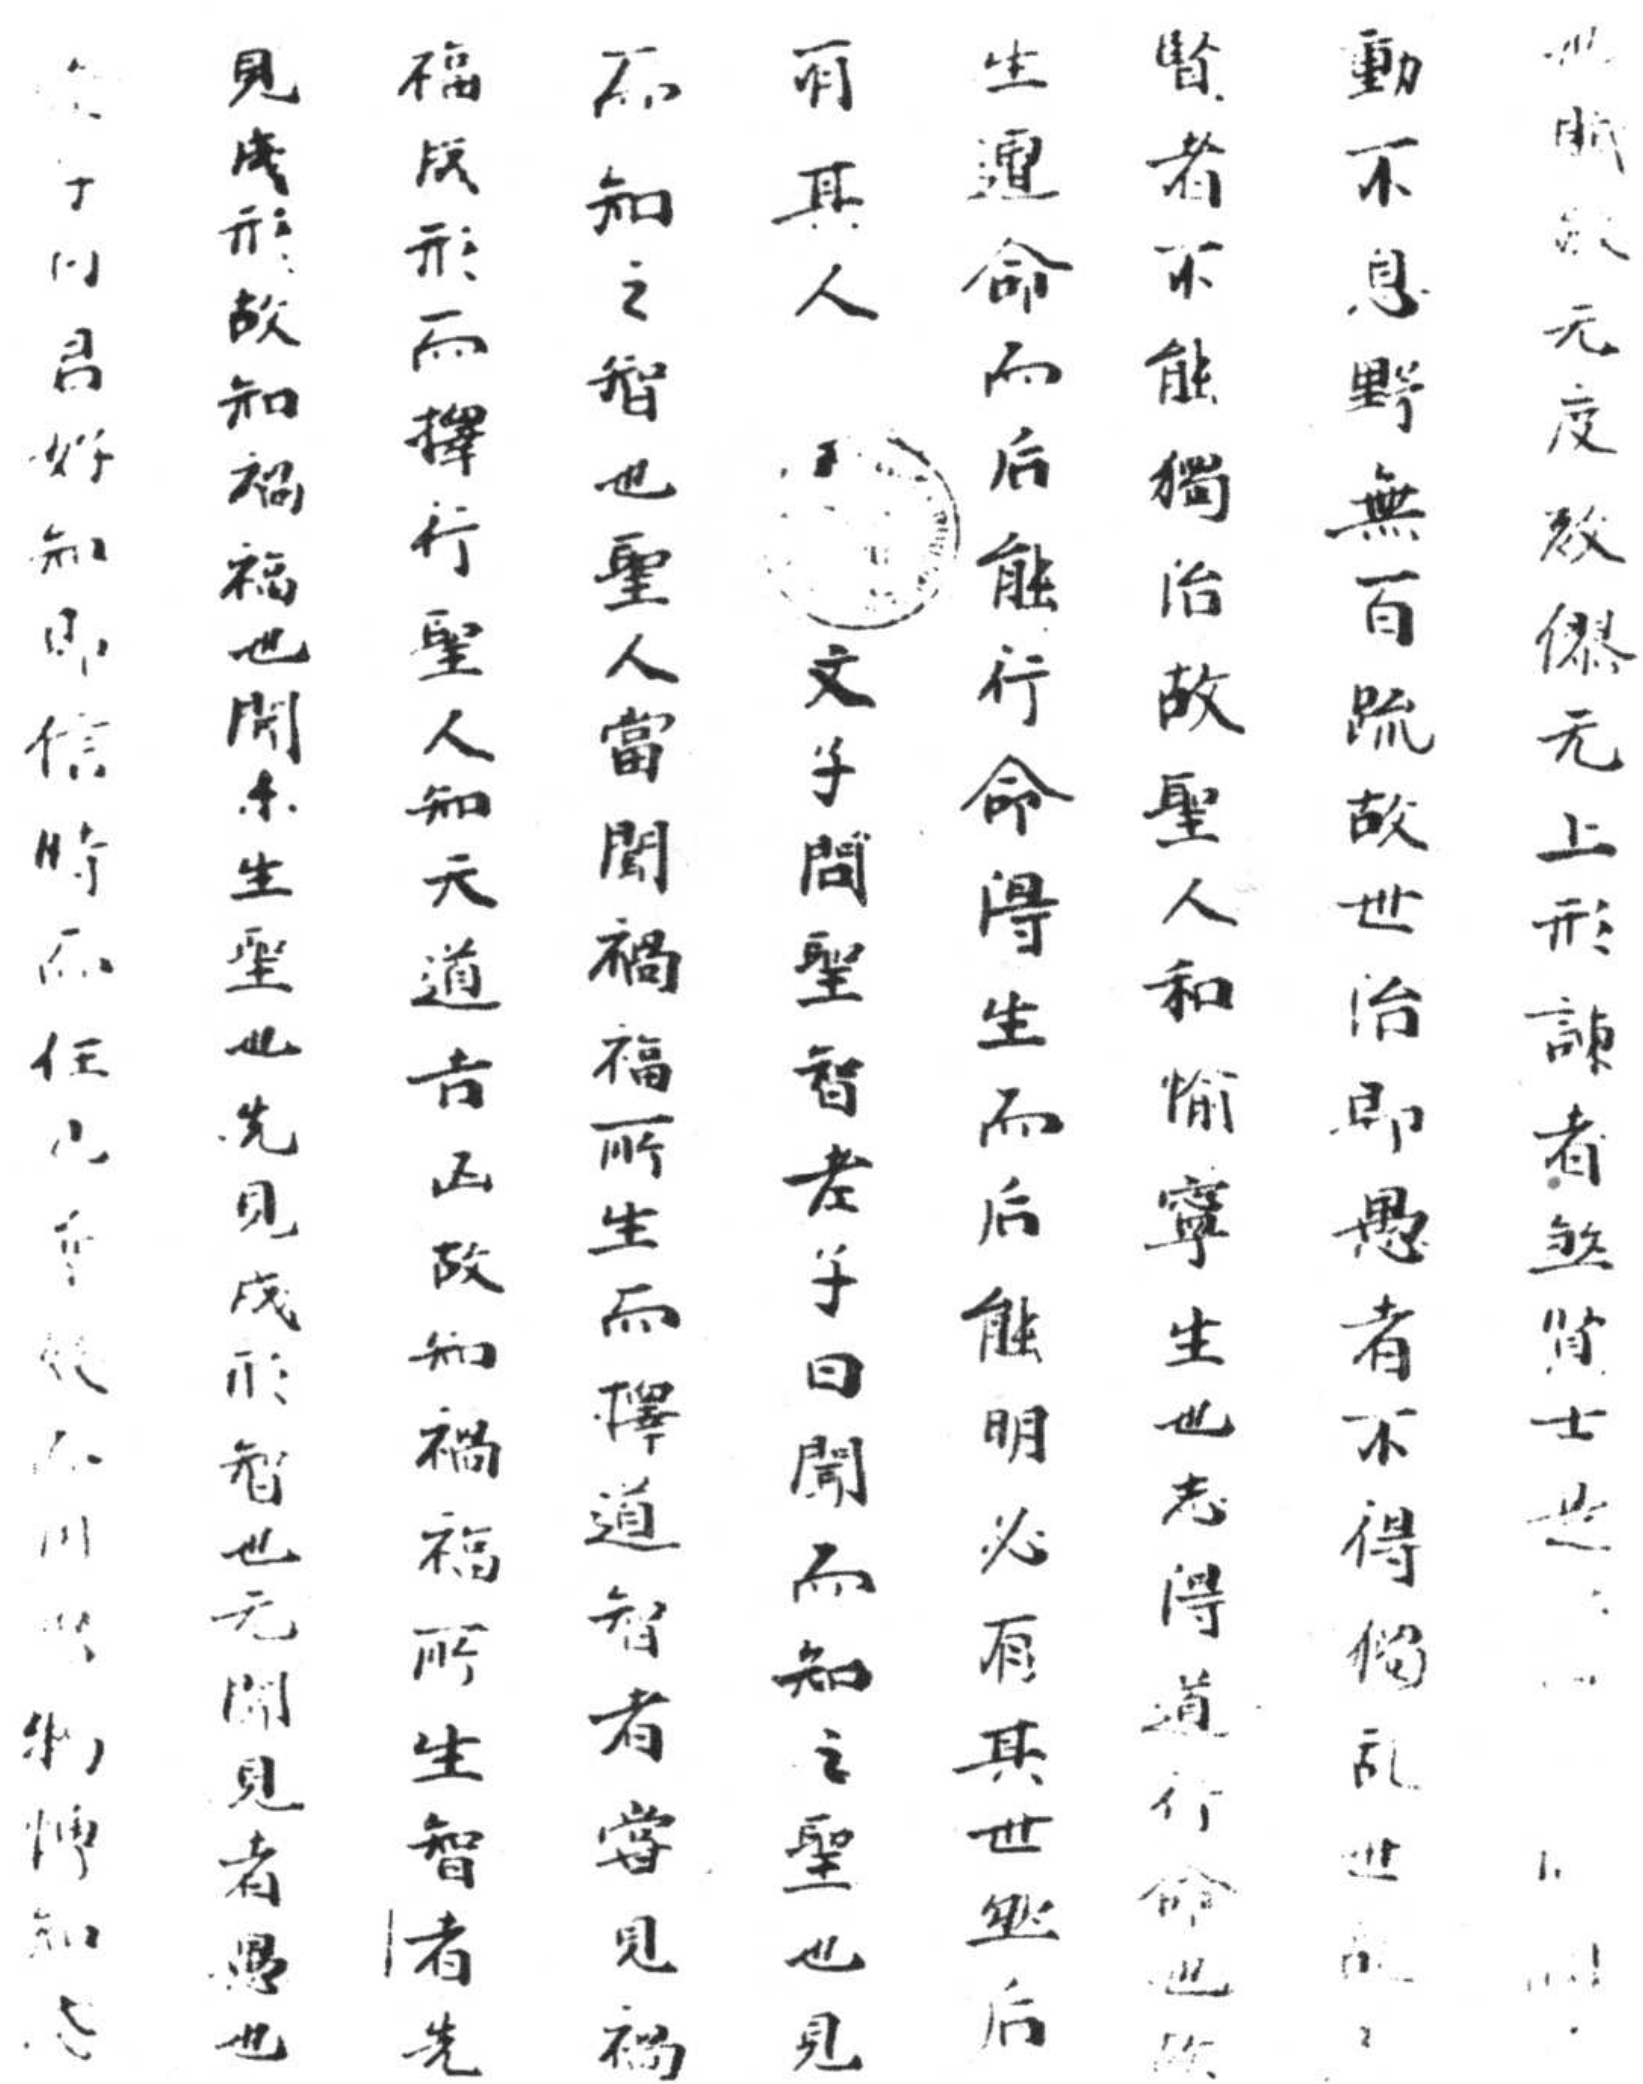 賦斂无度殺僇无止形諫者煞賢士
動不息野無百蔬故世治即愚者不得獨乱世
賢者不能獨治故聖人和愉寧生也志得道行命也故
生遭命而后能行命得生而后能明必有其世然后
有其人 文子問聖智老子曰聞而知之聖也見
而知之智也聖人當聞禍福所生而擇道智者嘗見禍
福成形而擇行聖人知天道吉凶故知禍福所生智者先
見成形故知禍福也聞未生聖也先見成形智也无聞見者愚也
君好知即信時而任己 物博知